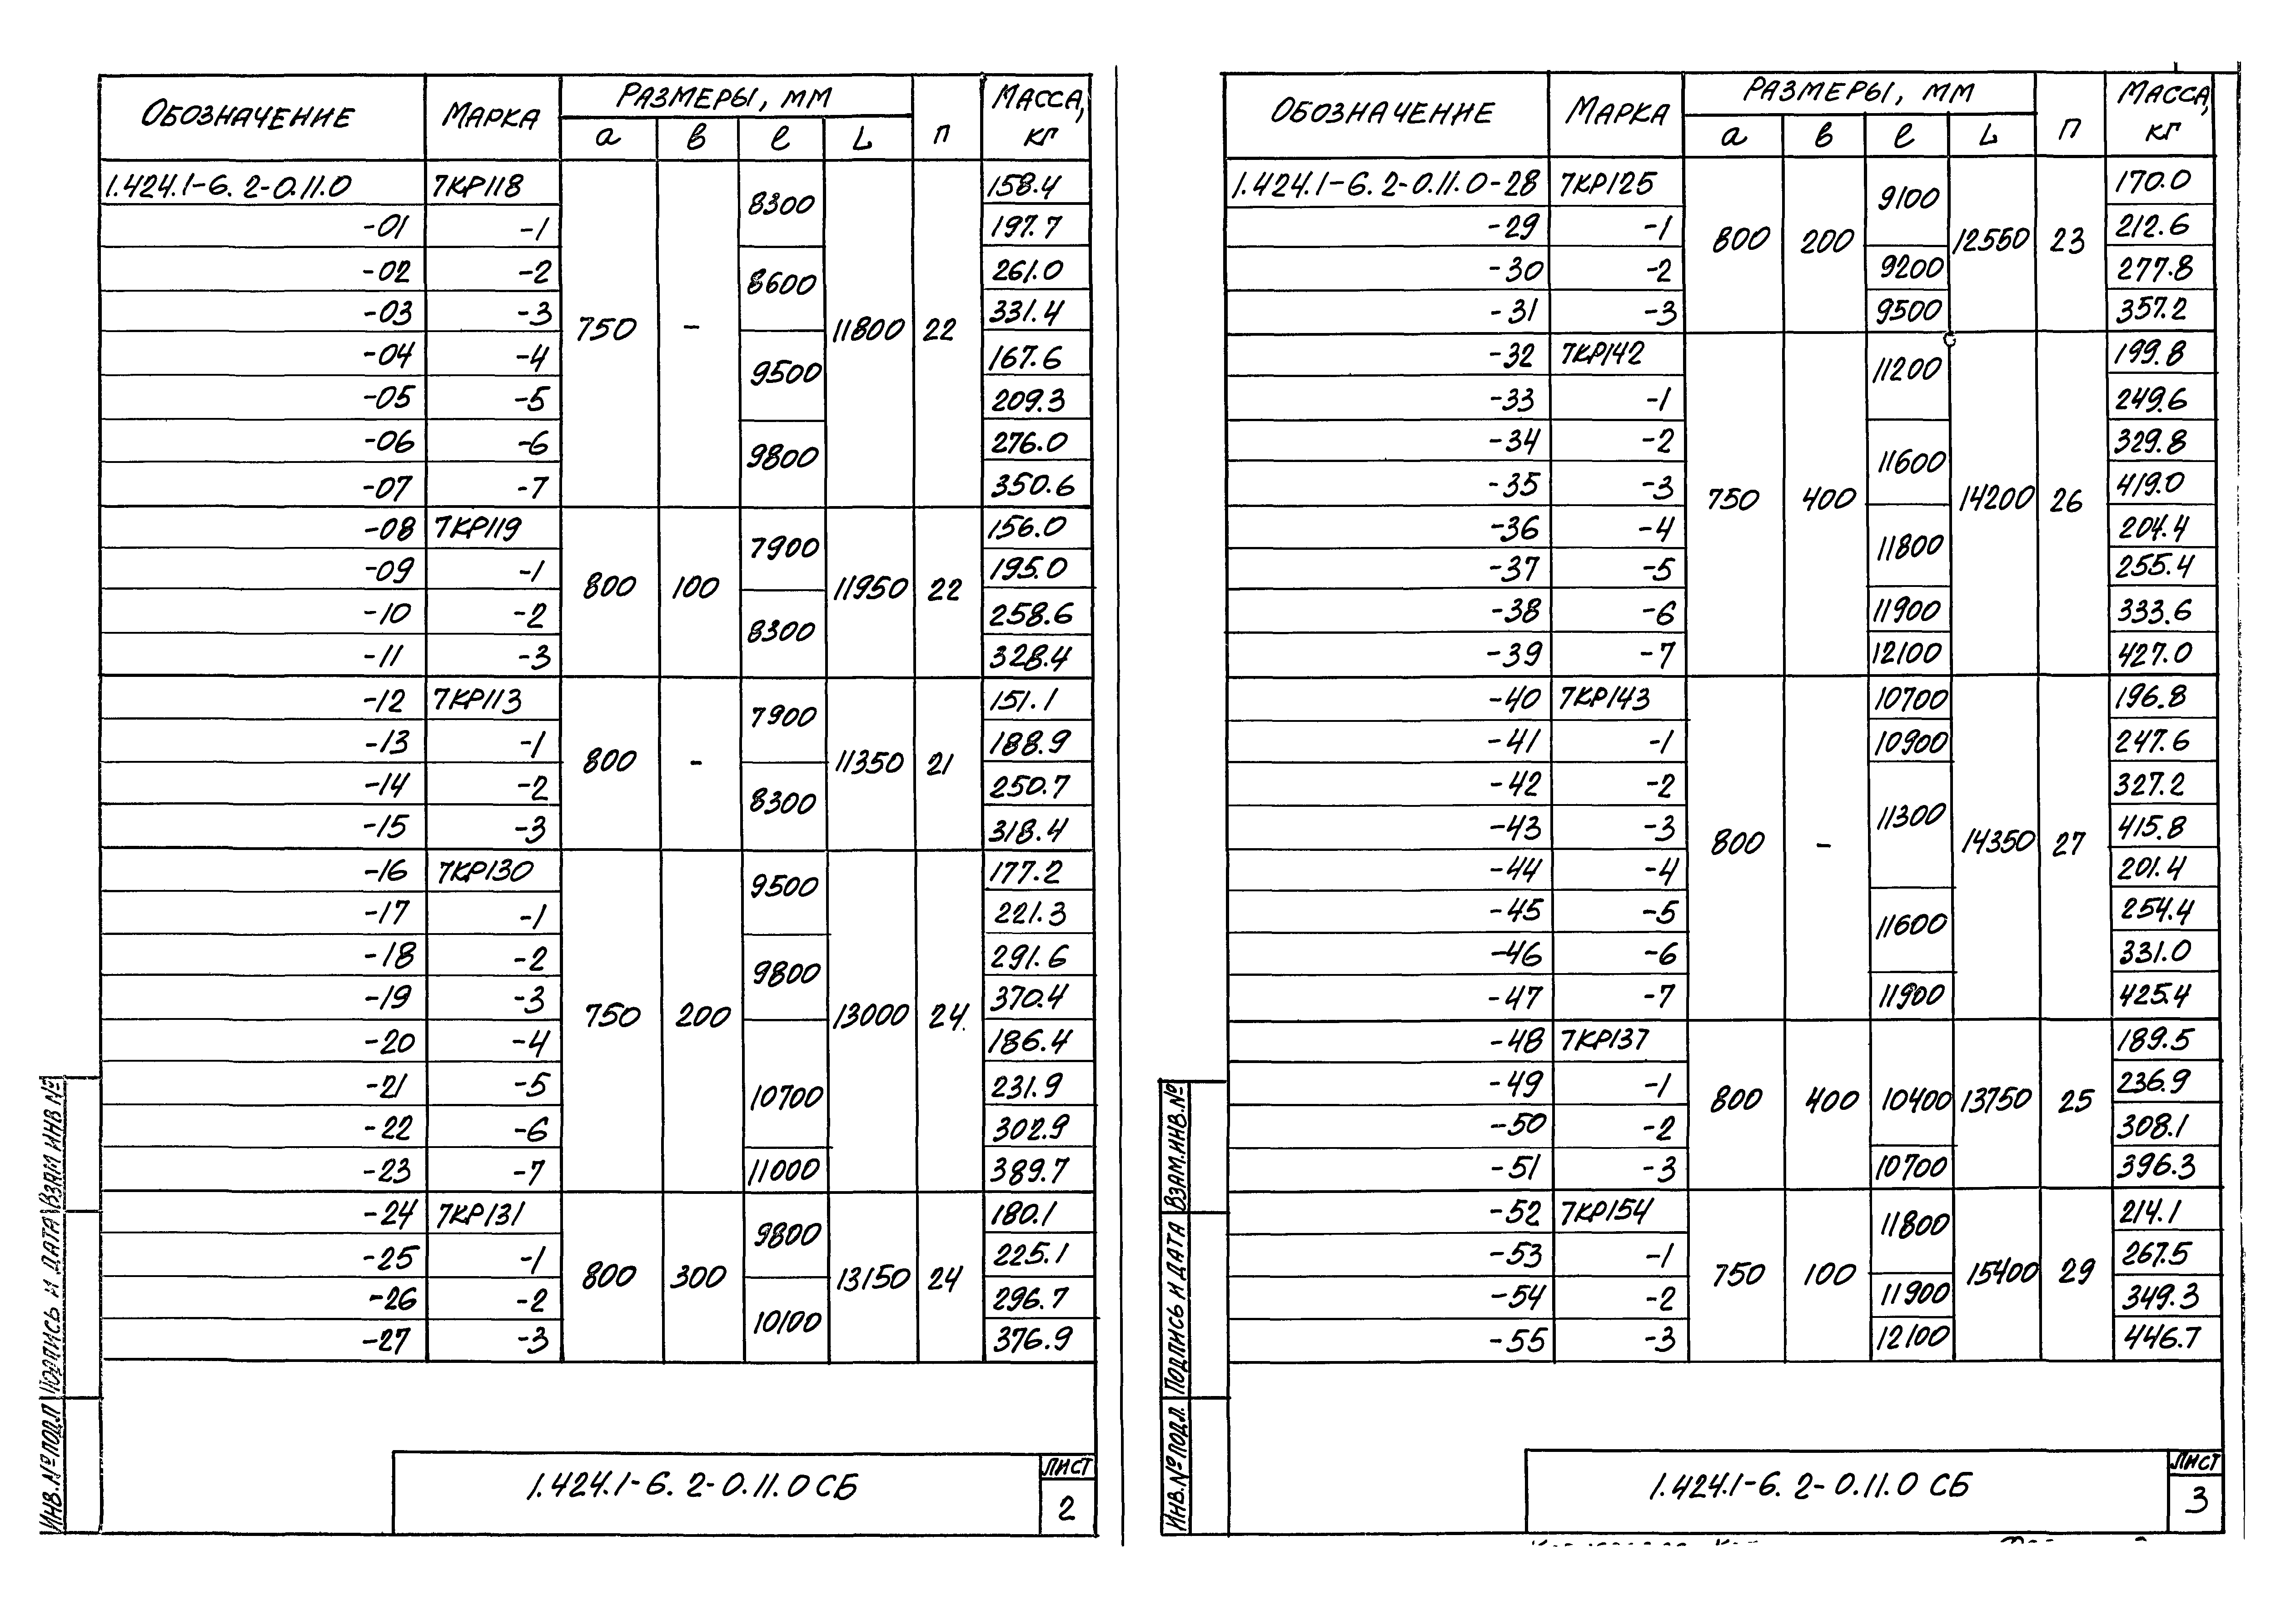 ОБОЗНАЧЕНИЕ МАРКА РАЗМЕРЫ, ММ п МАССА, кг
а в ℓ L
1.424.1-6. 2-0.11.0 7КР118 750 - 8300 11800 22 158.4
-01 -1 197.7
-02 -2 8600 261.0
-03 -3 331.4
-04 -4 9500 167.6
-05 -5 209.3
-06 -6 9800 276.0
-07 -7 350.6
-08 7КР119 800 100 7900 11950 22 156.0
-09 -1 195.0
-10 -2 8300 258.6
-11 -3 328.4
-12 7КР113 800 - 7900 11350 21 151.1
-13 -1 188.9
-14 -2 8300 250.7
-15 -3 318.4
-16 7КР130 750 200 9500 13000 24 177.2
-17 -1 221.3
-18 -2 9800 291.6
-19 -3 370.4
-20 -4 10700 186.4
-21 -5 231.9
-22 -6 302.9
-23 -7 11000 389.7
-24 7КР131 800 300 9800 13150 24 180.1
-25 -1 225.1
-26 -2 10100 296.7
-27 -3 376.9
ИНВ.№ПОДЛ ПОДПИСЬ И ДАТА ВЗАМ ИНВ №
1.424.1-6. 2-0.11.0 СБ
ЛИСТ
2
ОБОЗНАЧЕНИЕ МАРКА РАЗМЕРЫ, ММ п МАССА, кг
а в ℓ L
1.424.1-6. 2-0.11.0-28 7КР125 800 200 9100 12550 23 170.0
-29 -1 212.6
-30 -2 9200 277.8
-31 -3 9500 357.2
-32 7КР142 750 400 11200 14200 26 199.8
-33 -1 249.6
-34 -2 11600 329.8
-35 -3 419.0
-36 -4 11800 204.4
-37 -5 255.4
-38 -6 11900 333.6
-39 -7 12100 427.0
-40 7КР143 800 - 10700 14350 27 196.8
-41 -1 10900 247.6
-42 -2 11300 327.2
-43 -3 415.8
-44 -4 201.4
-45 -5 11600 254.4
-46 -6 331.0
-47 -7 11900 425.4
-48 7КР137 800 400 10400 13750 25 189.5
-49 -1 236.9
-50 -2 308.1
-51 -3 10700 396.3
-52 7КР154 750 100 11800 15400 29 214.1
-53 -1 267.5
-54 -2 11900 349.3
-55 -3 12100 446.7
ИНВ.№ПОДЛ. ПОДПИСЬ И ДАТА ВЗАМ.ИНВ.№
1.424.1-6. 2-0.11.0 СБ
ЛИСТ
3